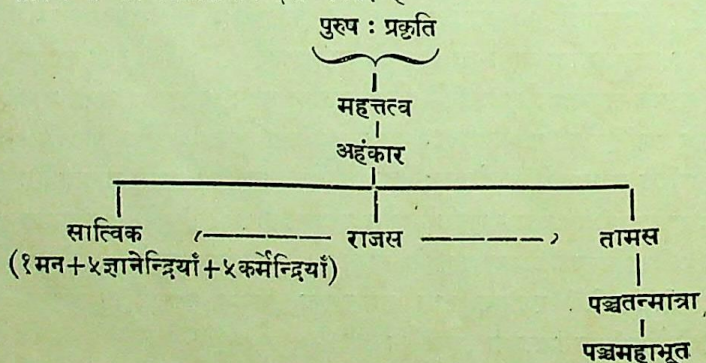 पुरुष : प्रकृति
महत्तत्व
अहंकार
सात्विक राजस तामस
(१मन+५ज्ञानेन्द्रियाँ+५कर्मेन्द्रियाँ)
पञ्चतन्मात्रा
पञ्चमहाभूत